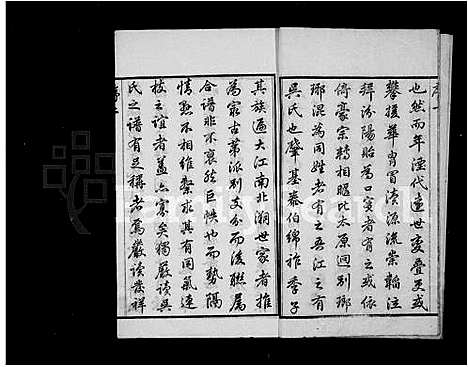 也然而年湮代遠世變疊更或
攀援華胄冒瀆源流崇韜泣
拜汾陽貽為口實者有之或依
倚豪宗轉相眩比太原回別瑯
瑯混為同姓者有之吾江之有
吳氏也肇基泰伯綿祚季子
其族遍大江南北溯世家者推
為最古第派別支分而後聯屬
合譜非不裒然成帙也而勢隔
情愁不相維繫求其有同氣連
枝之誼者蓋亦寡矣獨嚴讀吳
氏之譜有足稱者焉嚴讀發祥
familysearch